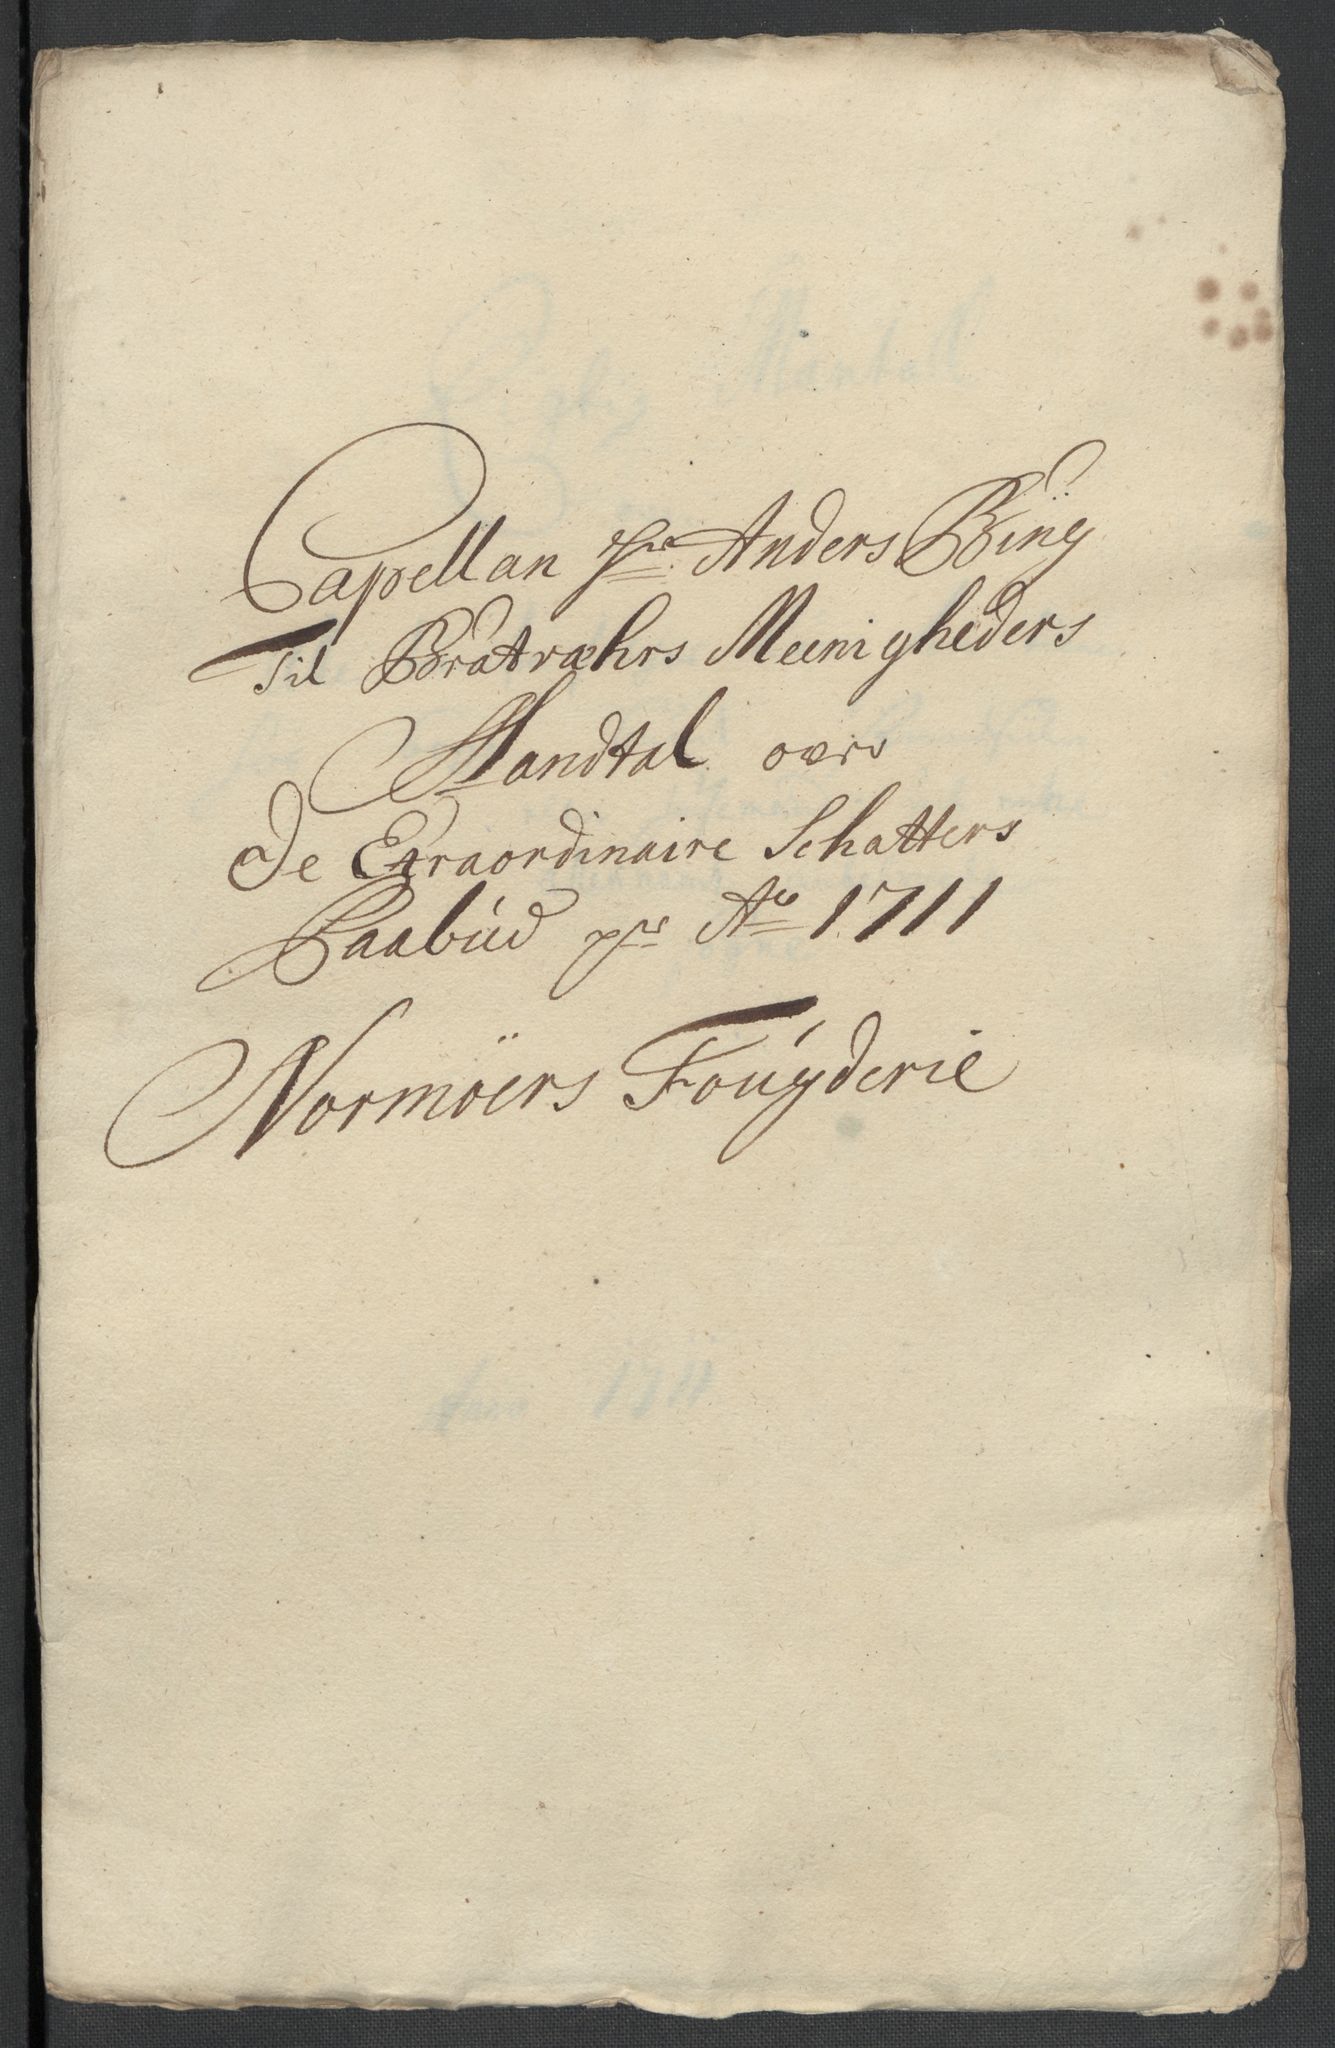 Capellan Hr. Anders Bing
Til Bratværhrs Meenigheders
Mandtal over
De Extraordinaire Schatters
Paabúd pr Ao 1711
Normöers Foúgderie
Anno 1711